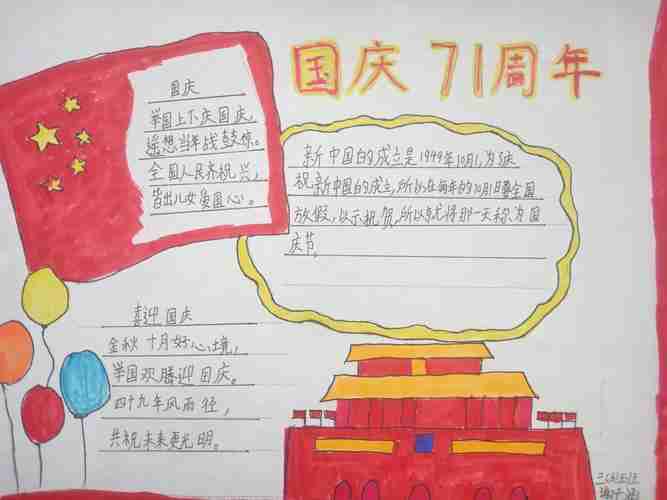 国庆71周年
国庆
举国上下庆国庆，
遥想当年战鼓惊。
全国人民齐祝兴，
皆出儿女爱国心。
新中国的成立是1949年10月1，为了庆
祝新中国的成立，所以在每年的10月1日
放假，以示祝贺，所以就将那一天称为国
庆节。
喜迎国庆
金秋十月好心境，
举国欢腾迎国庆。
四十九年风雨径，
共祝未来更光明。